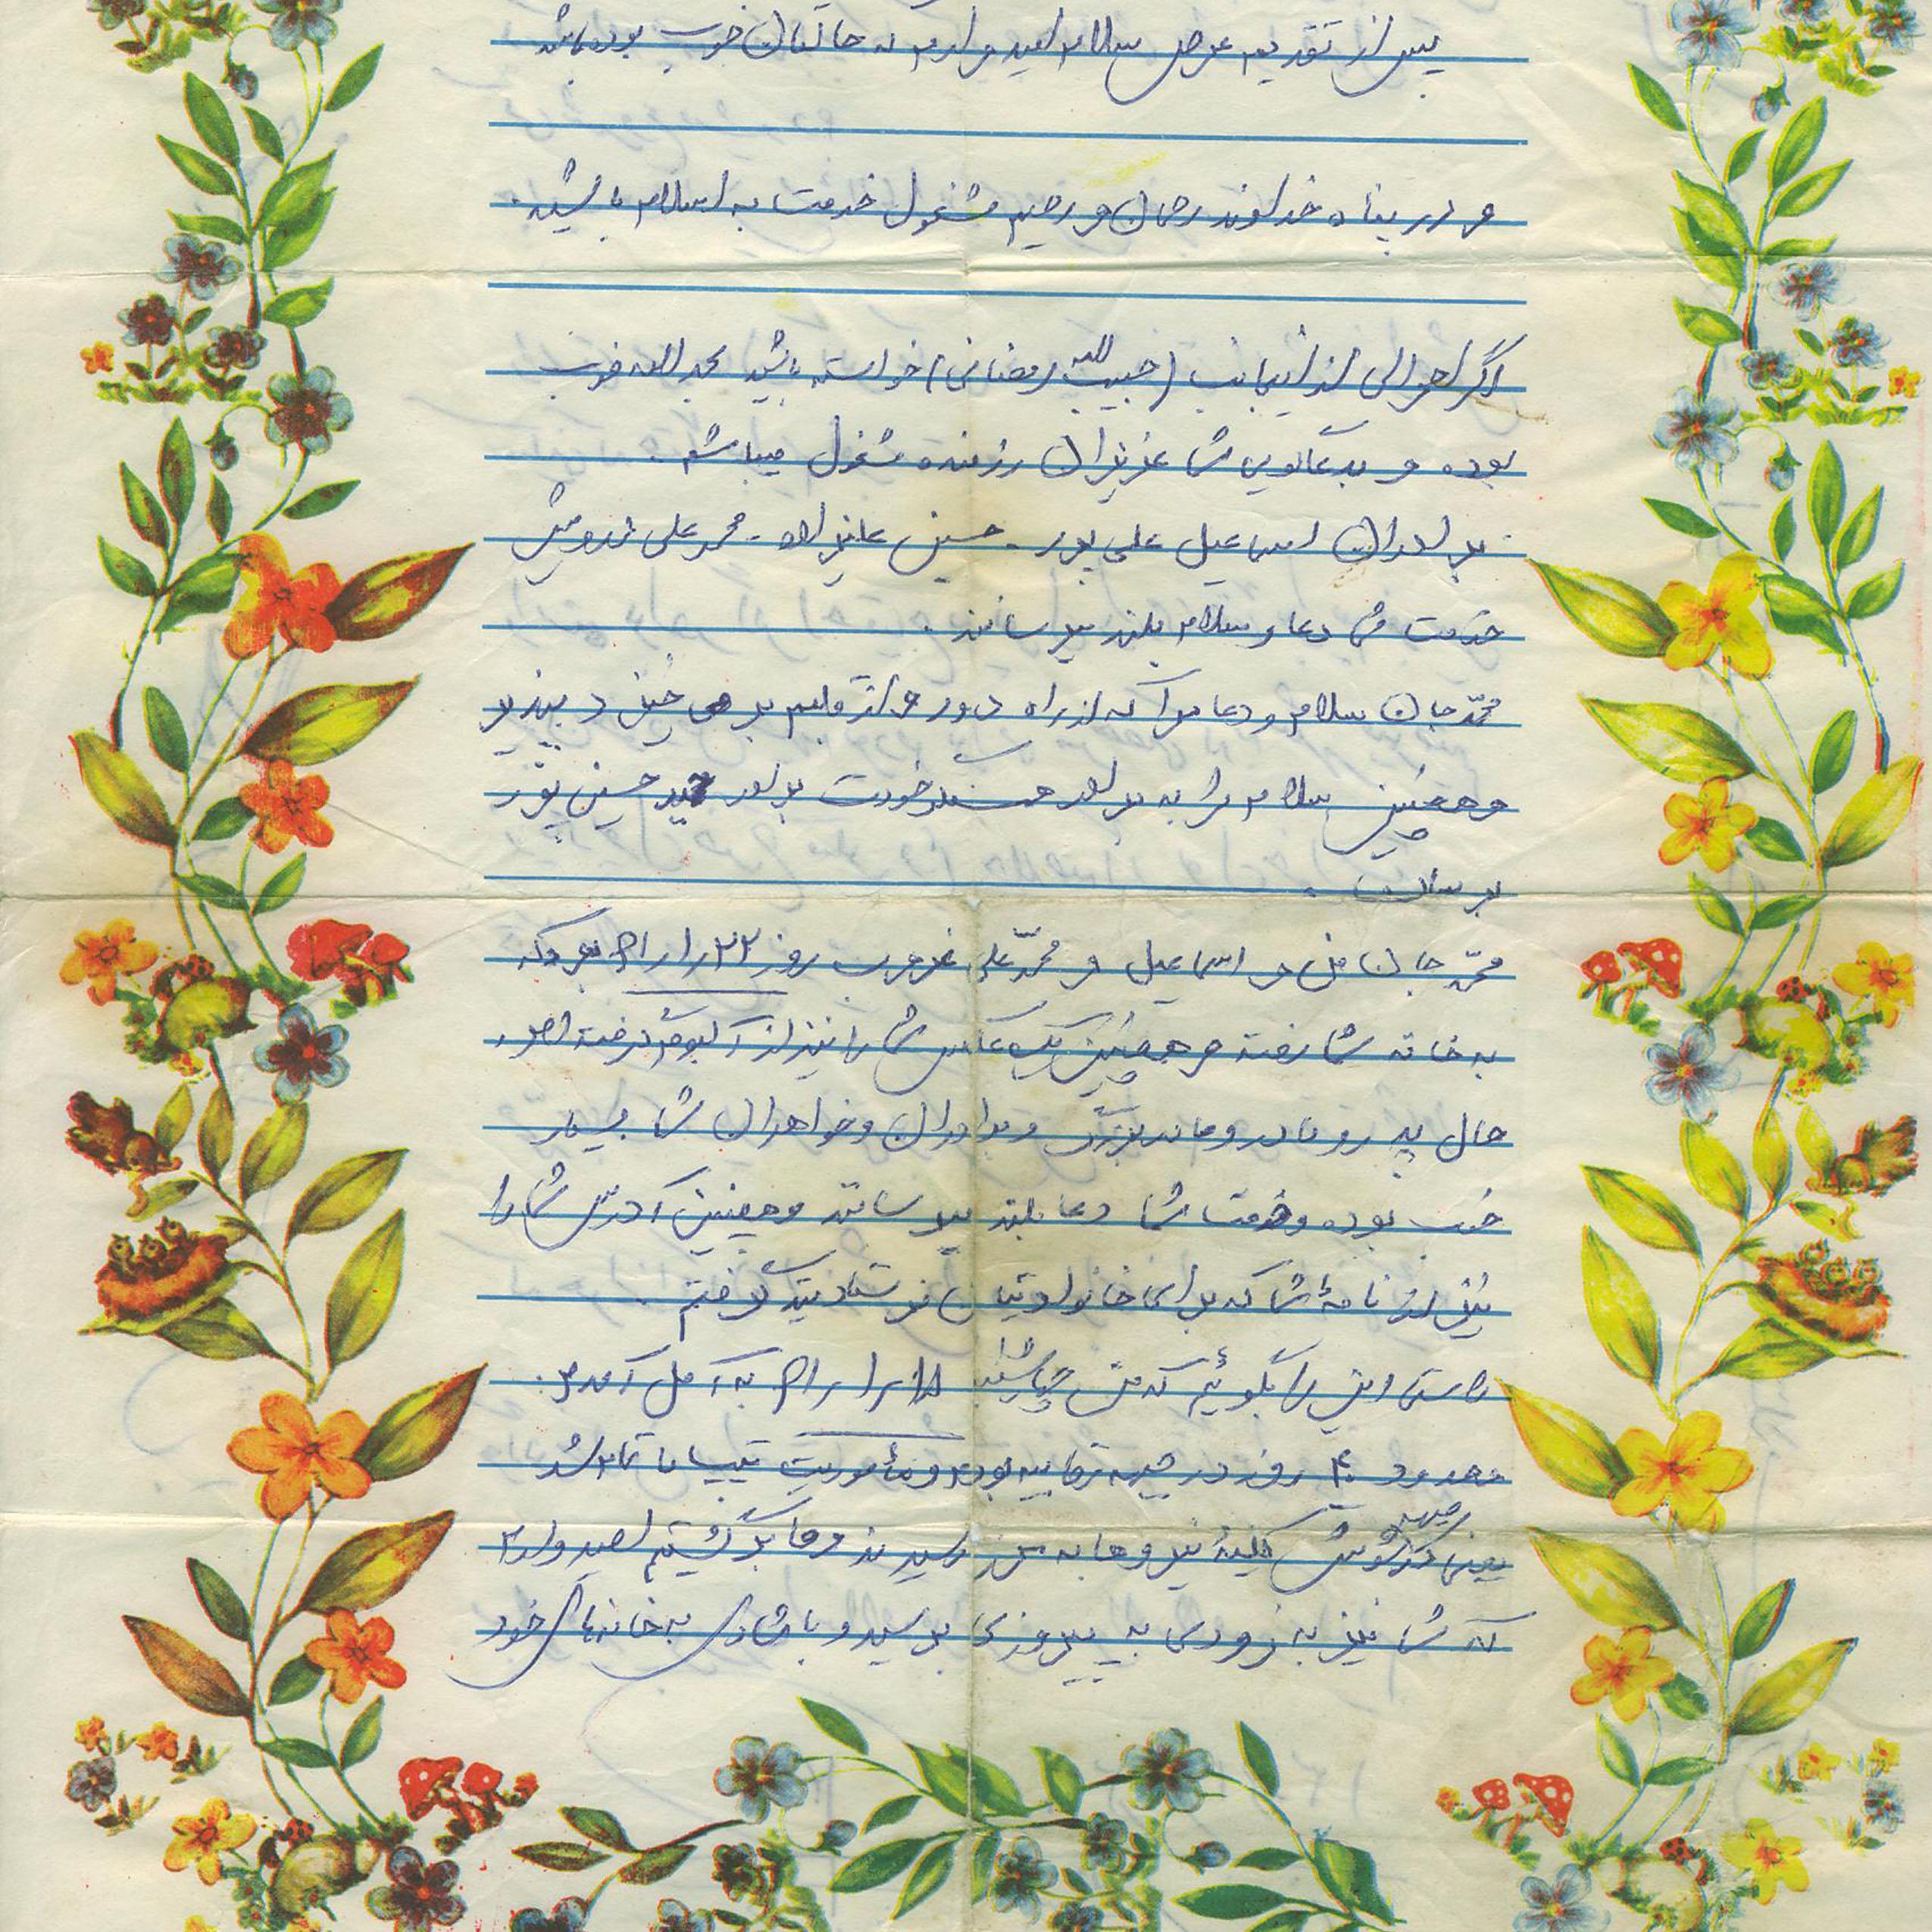 پس از تقدیم عرض سلام امیدوارم که حالتان خوب بوده باشد
و در پناه خداوند رحمان و رحیم مشغول خدمت به اسلام باشید.
اگر احوالی از اینجانب (حبیب الله رمضانی) خواسته باشید بحمدالله خوب
بوده و بدعاگویی شما عزیزان رزمنده مشغول میباشم.
برادران اسماعیل علی پور - حسین - محمد علی
خدمت شما دعا و سلام بلند میرسانند.
محمّد جان سلام و دعا مرا که از راه دور و از قلبم بر می خیزد بپذیر
و همچنین سلام مرا به برادر همسنگر خودت برادر سید حسین پور
برسان.
محمّد جان من و اسماعیل و محمّد علی غروب روز ۲۲ر۱ر۶۱ بود که
به خانه شما رفته و همچنین یک عکس شما را نیز از آلبوم گرفته ام،
حال پدر و مادر و مادر بزرگ و برادران و خواهران شما بسیار
خوب بوده و خدمت شما دعا بلند میرسانند و همچنین آدرس شما را
نیز از نامهٔ شما که برای خانوادیتان فرستادید گرفتم.
راستی این را بگوئیم که من شب ۱۸ر۱ر۶۱ به آمل آمدم.
حدود ۴۰ روز در جبهه رقابیه بودم و مأموریت تیپ ما تمام شد
یعنی کلیهٔ نیروها به مرز رسیدند و ما برگشتیم امیدوارم
که شما نیز به زودی به پیروزی برسید و با شادی به خانه‌های خود